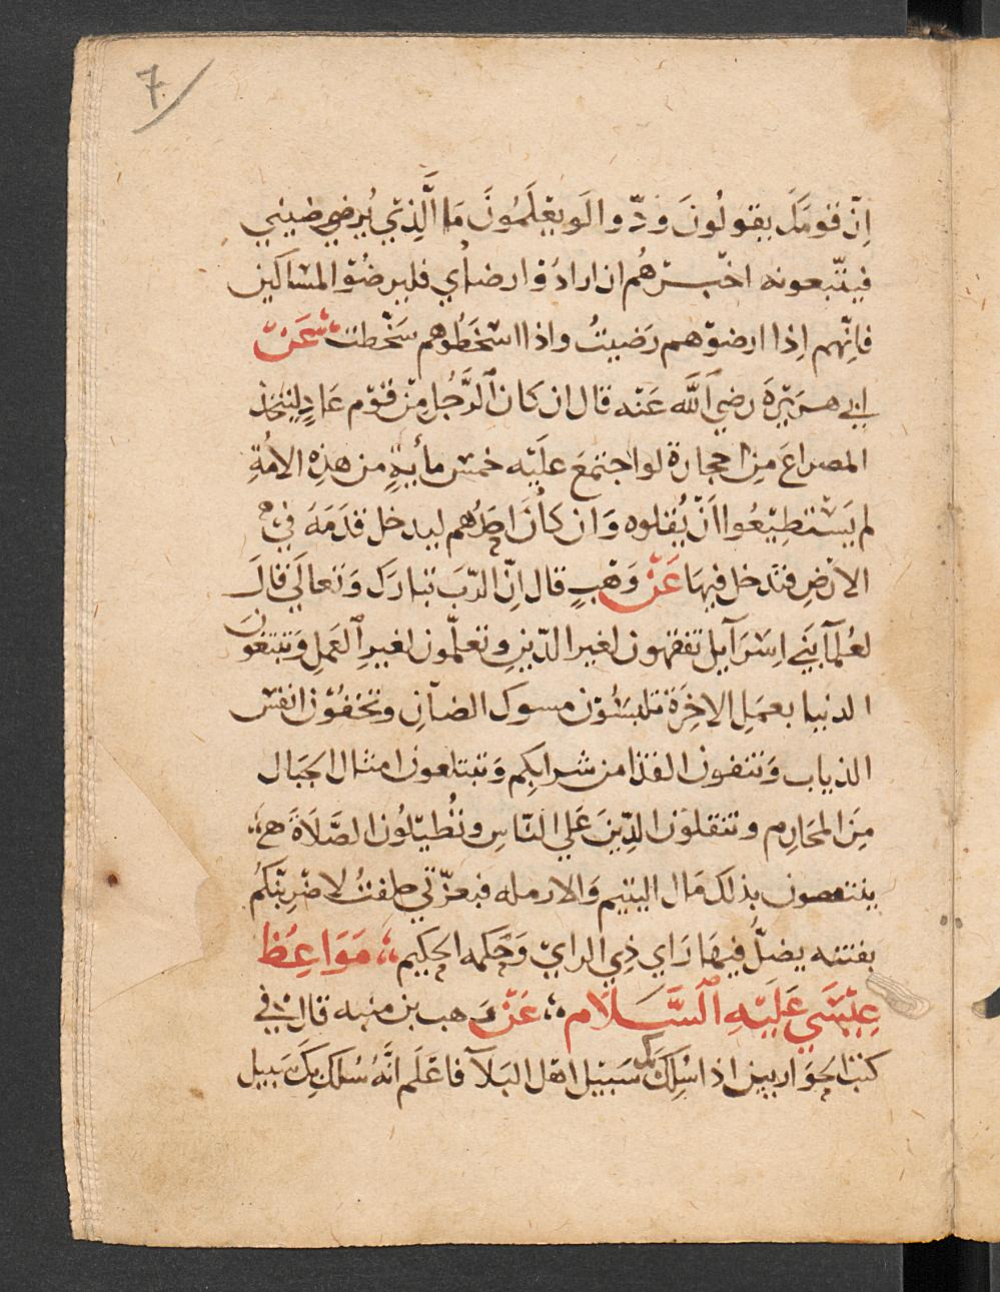 7
اِنّ قومَكَ يقولُونَ ودّوا لَو يعْلَمُونَ مَا الَّذِي يُرضي ضيني
فيتّبعونه اخبرْهُم ان ارادُوْا رضاي فليرضُوْا المسَاكين
فاِنّهم اِذا ارضوْهم رَضيتُ واذا اسْخَطُوهم سَخّطت عَنْ
ابي هرَيْرَةَ رضي اَللَّه عَنْه قال ان كان اَلرَّجُل مِنْ قوْم عَادٍ ليتخذ
المصراعَ مِن احجارة لو اجتمَعَ علَيْه خمس مأيةٍ من هذِه الامُةِ
لم يَسْتطِيْعُوا اَنْ يُقلوه وَان كانَ احَدُهم ليدخل قدَمَهَ في
الارْضِ فتدخل فيهَا عَنْ وَهْبٍ قال اِنّ الرّبَ تبارَكَ وَتعالَي قالَ
لعُلمآ بَني اِسْرَآيل تفقهون لغير الدّينِ وتعلّمون لغيرِ اَلعَملِ وَتبتغونَ
الدنيا بعمَلِ الاخِرَة تلبَسُوْن مسوك الضاَنِ وتخفُوْن انفس
الذياب وَتنفون القذا من شرابِكم وَتبتلعون امثال الجبَال
مِنَ المحَارِم وتثقلوْن الدِّينَ عَلي النّاسِ وتُطيّلُون الصَّلَاةَ
ينتقصون بذلك مَال اليتيم وَالارمله فبعزّتي حلفتُ لاضْرِبنّكُم
بفتنه يضلُّ فيهَا رَاي ذِي الراي وَحَكمه الحكيم مَوَاعِظ
عِيْسَي عَلَيْهِ اَلسَّلَام عَنْ وَهب بن منبه قال في
كتب الحوَاريين اذا سُلِكَ بك سَبيْل اهْل البَلآ فاعْلَم انَّهُ سُلكَ بِكَ سَبيل